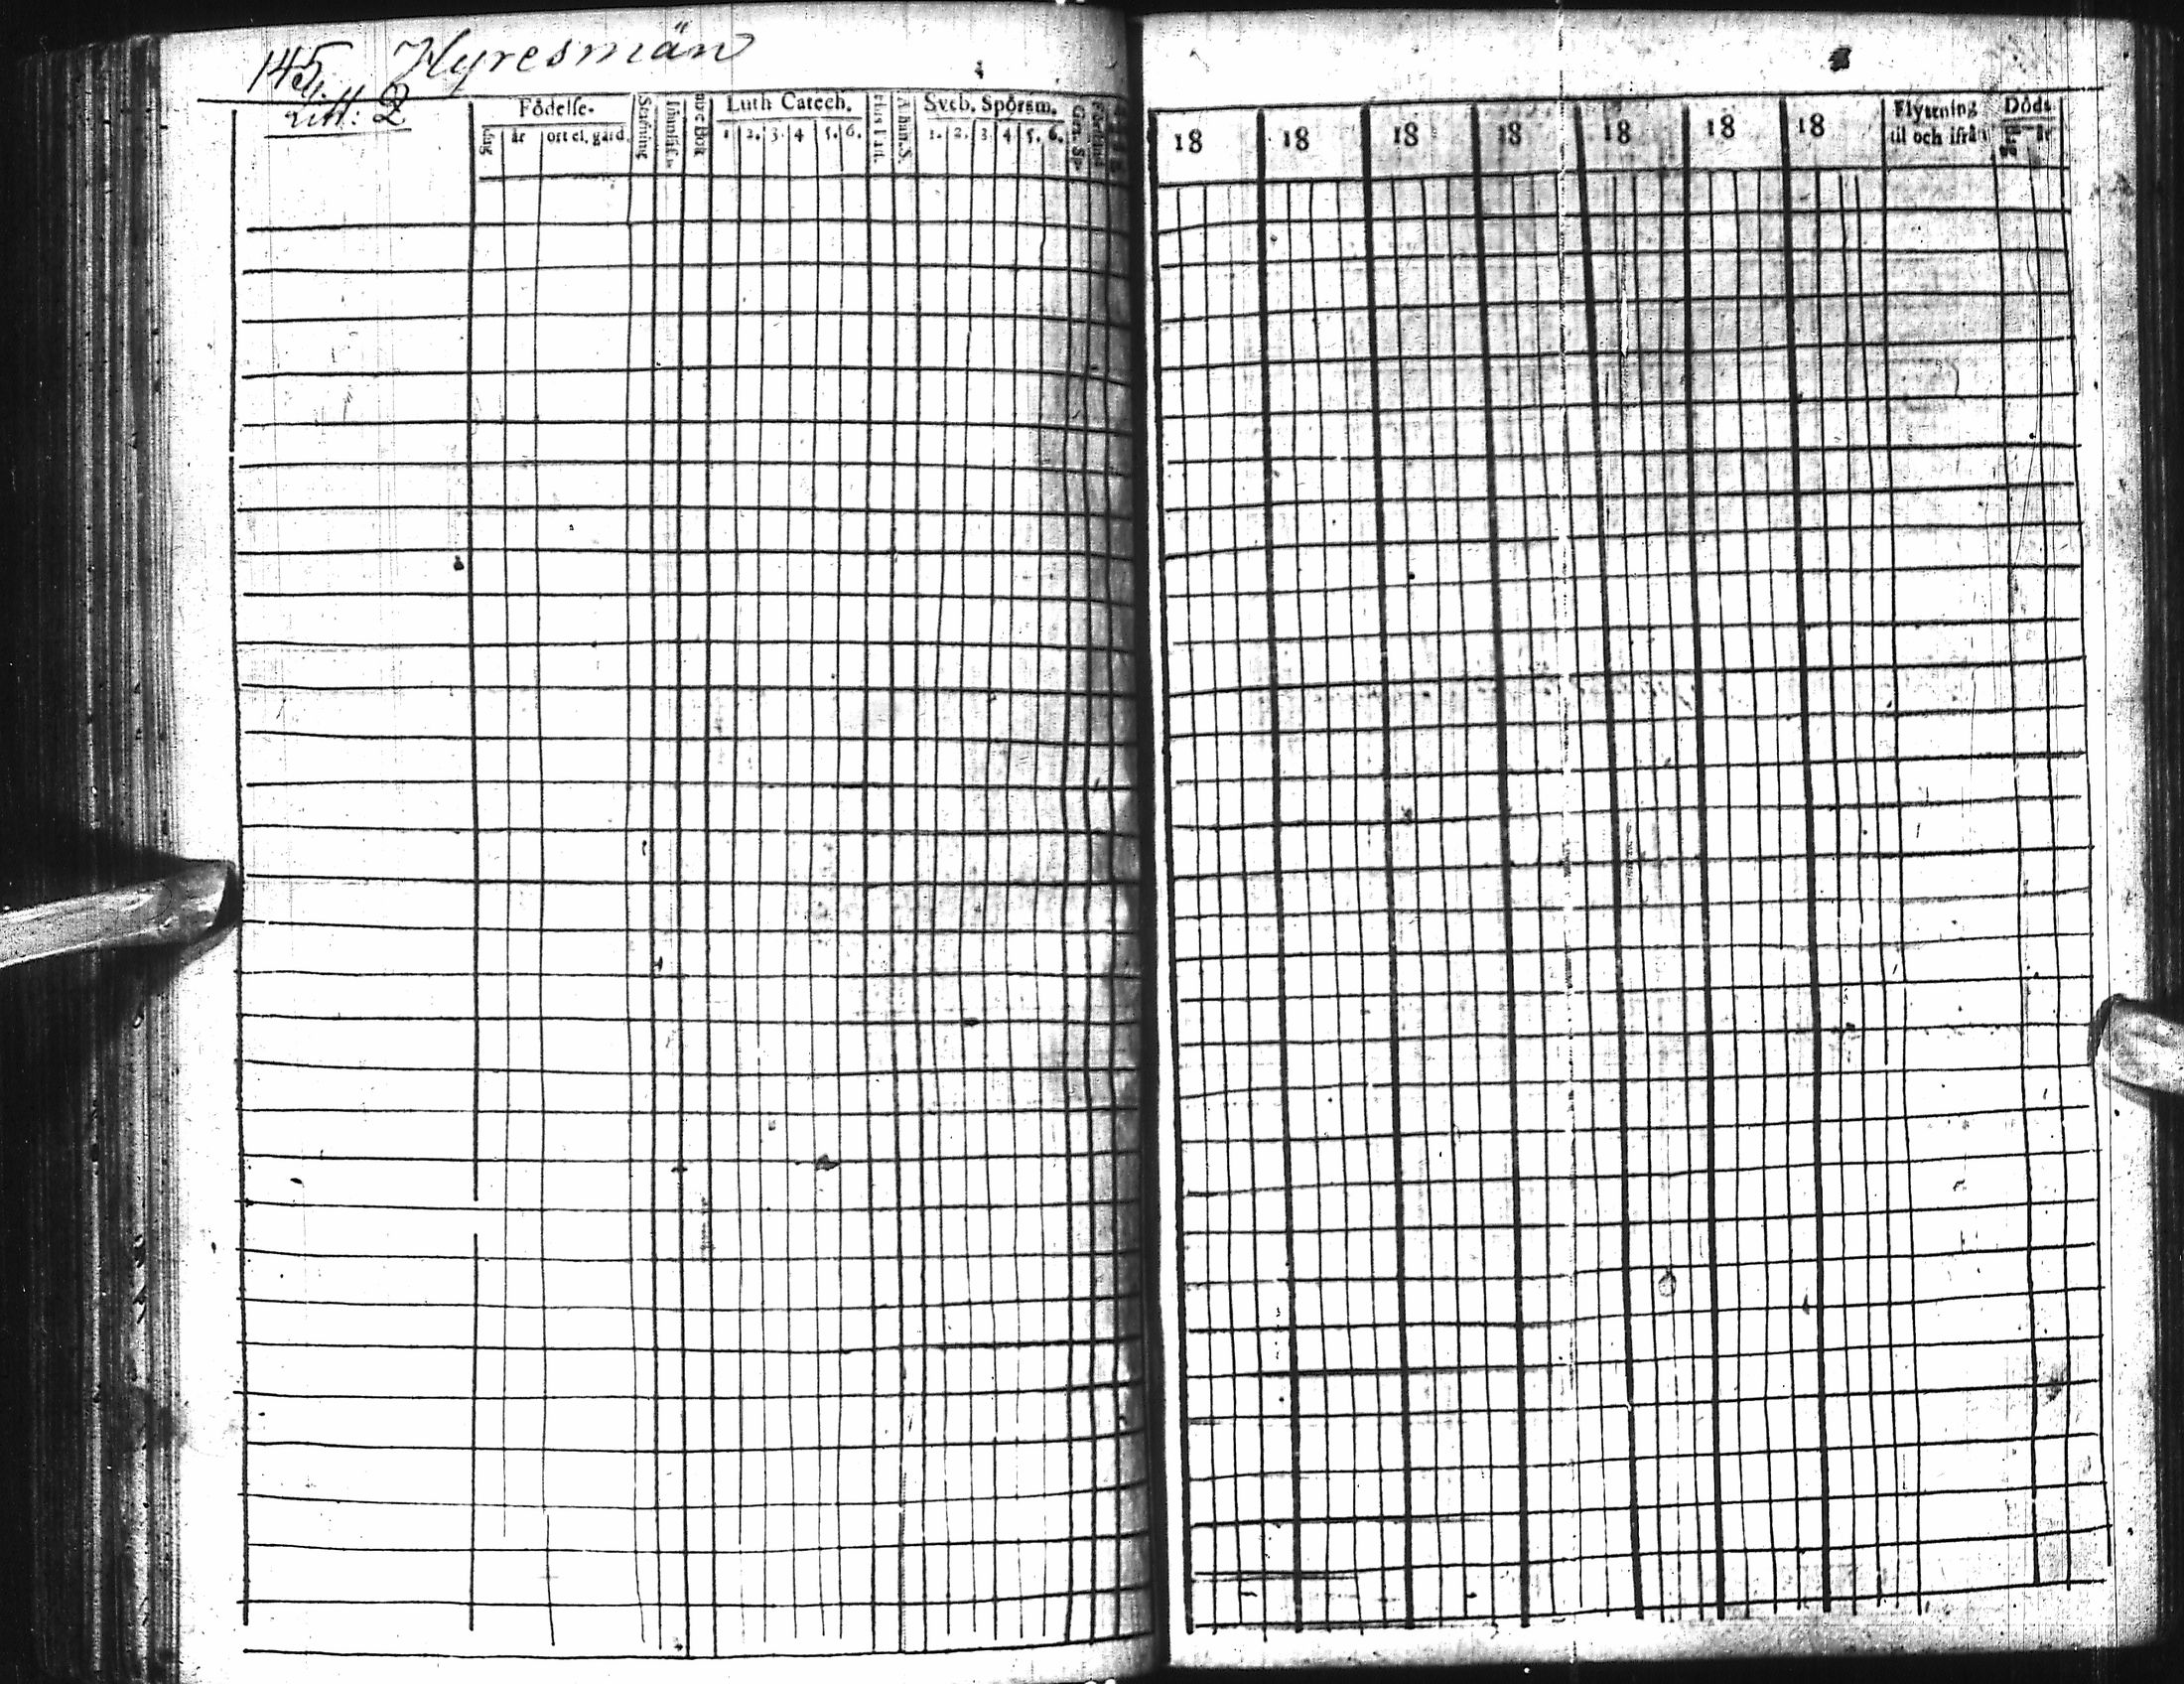 145. Hyresmän
Litt: 2
Födelse-
dag år ort el. gård.
Stafning
Innanläsn.
Luth Catech.
1 2. 3. 4 5. 6.
A-than. S.
Sveb. Spörsm.
1. 2. 3. 4 5. 6.
Gez. Sp
18 18 18 18 18 18 18
Flyttning
til och ifrån
Döds
år